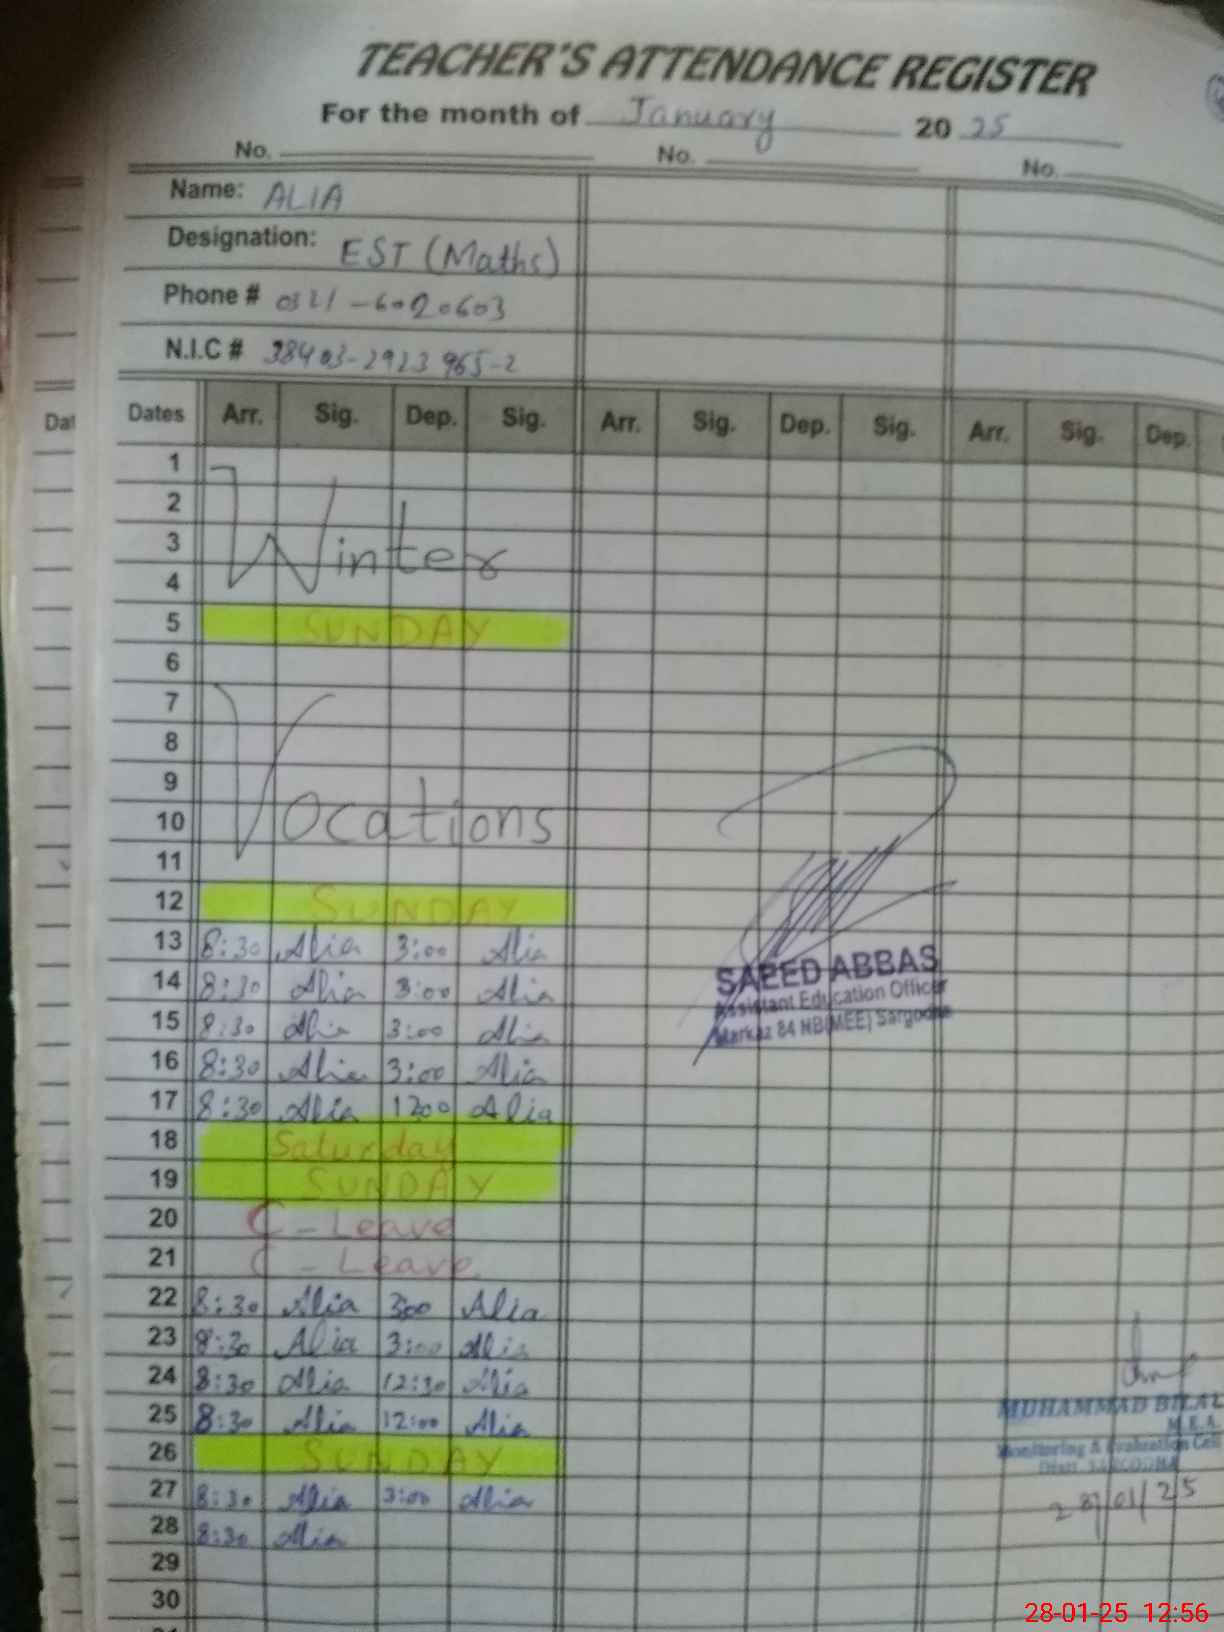 TEACHER'S ATTENDANCE REGISTER
For the month of January 2025
No. No. No.
Name: ALIA
Designation: EST (Maths)
Phone # 0321-6020603
N.I.C # 38403-2923965-2
Dat
Dates Arr. Sig. Dep. Sig. Arr. Sig. Dep. Sig. Arr. Sig. Dep.
1
2
3 Winter
4
5 SUNDAY
6
7
8
9
10 Vocations
11
12 SUNDAY
13 8:30 Alia 3:00 Alia
14 8:30 Alia 3:00 Alia
15 8:30 Alia 3:00 Alia
16 8:30 Alia 3:00 Alia
17 8:30 Alia 1200 Alia
18 Saturday
19 SUNDAY
20 C - Leave
21 C - Leave
22 8:30 Alia 3:00 Alia
23 8:30 Alia 3:00 Alia
24 8:30 Alia 12:30 Alia
25 8:30 Alia 12:00 Alia
26 SUNDAY
27 8:30 Alia 3:00 Alia
28 8:30 Alia
29
30
SAEED ABBAS
Assistant Education Officer
Markaz 84 NB(MEE) Sargodha
MUHAMMAD BILAL
M.E.A.
Monitoring & Evaluation Cell
Distt. SARGODHA
28/01/25
28-01-25 12:56